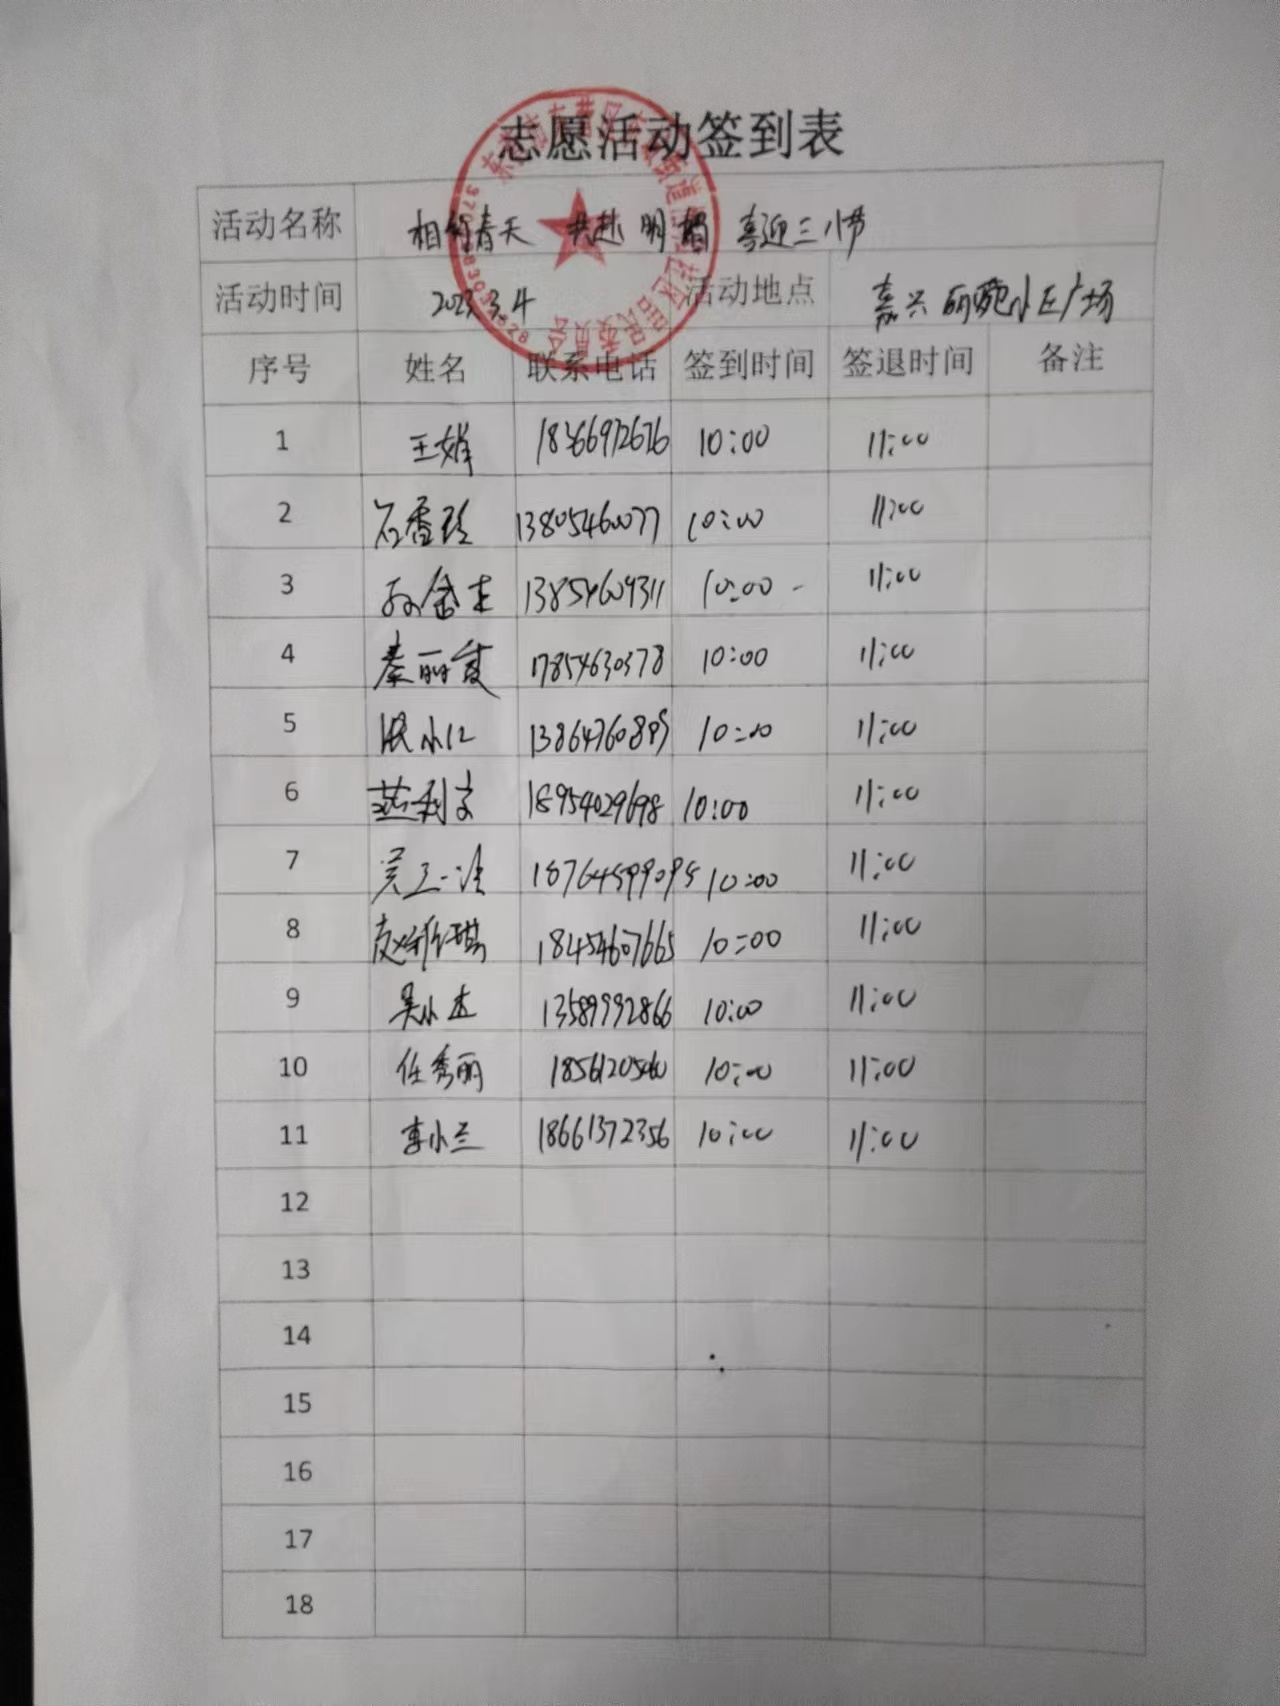 志愿活动签到表
活动名称 相约春天 共赴明媚 喜迎三八节
活动时间 2023.3.4 活动地点 嘉兴丽苑小区广场
序号 姓名 联系电话 签到时间 签退时间 备注
1 王娟 10:00 11:00
2 石香玲 13805460077 10:00 11:00
3 13854609311 10:00 11:00
4 秦丽霞 17854630378 10:00 11:00
5 10:00 11:00
6 燕利文 18954029698 10:00 11:00
7 18764599095 10:00 11:00
8 18454607665 10:00 11:00
9 吴小杰 13589992866 10:00 11:00
10 任秀丽 10:00 11:00
11 李小兰 18661372356 10:00 11:00
12
13
14
15
16
17
18